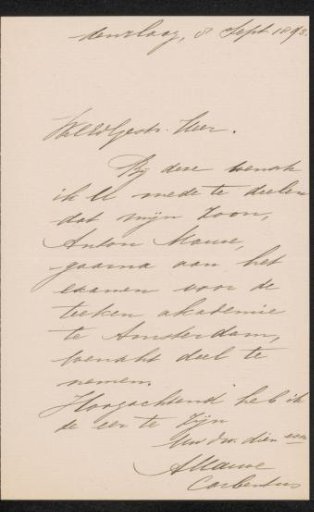 8 Sept 189
WelEdGestr. Heer.
Bij deze wensch
ik U mede te deelen
dat mijn zoon,
Anton Mauve,
gaarne aan het
examen voor de
teeken akademie
te Amsterdam,
wenscht deel te
nemen.
Hoogachtend heb ik
de eer te zijn
Uw dw. dien
A Mauve
Carbentus